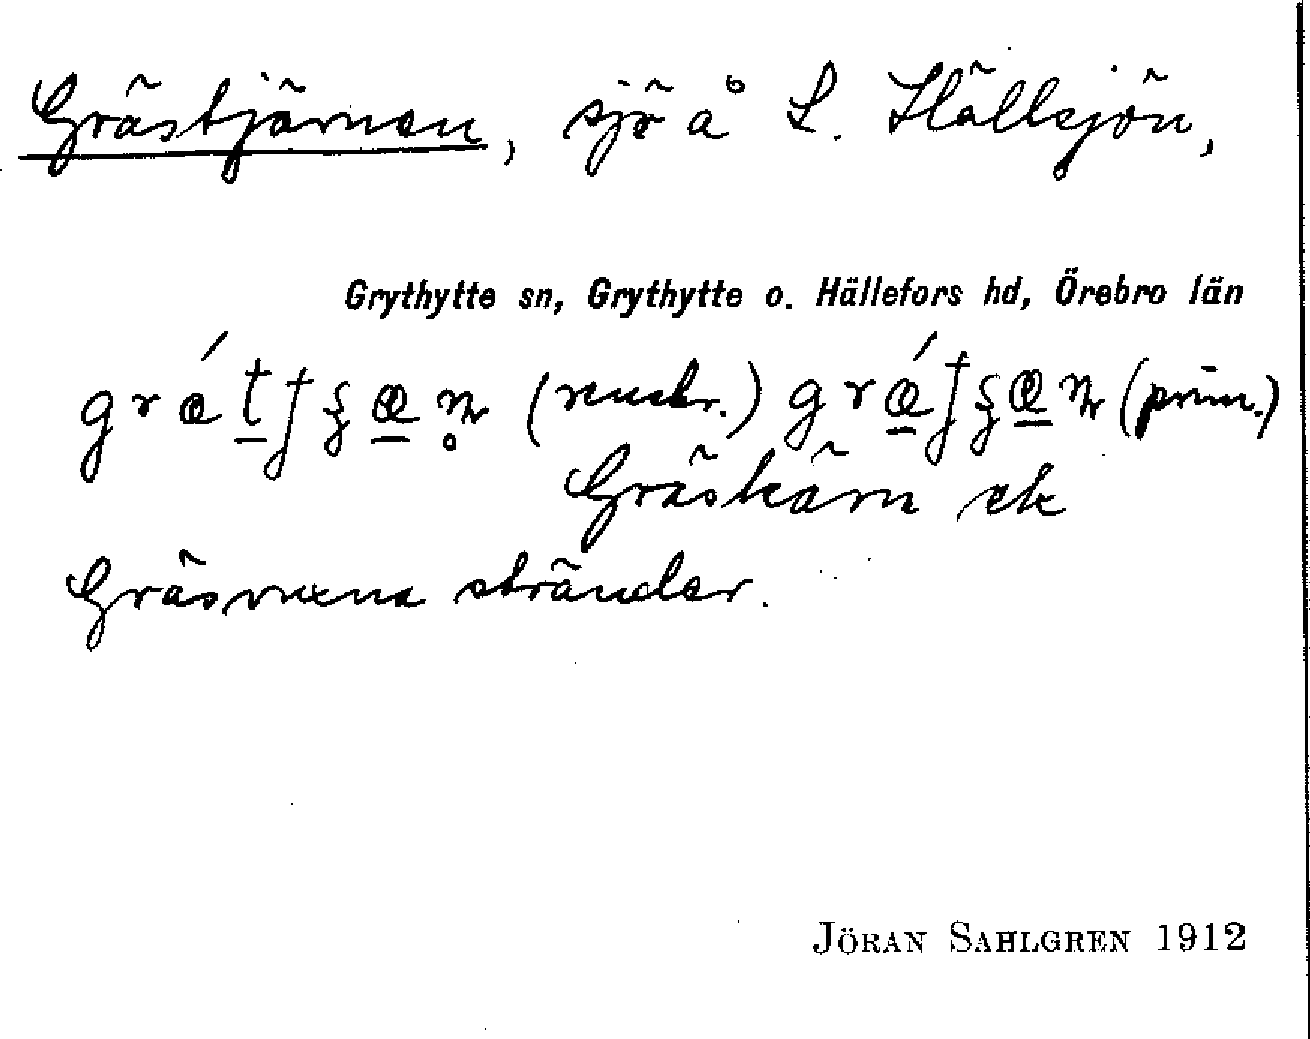 Grästjärnen, sjö å L. Hällsjön,
Grythytte sn, Grythytte o. Hällefors hd, Örebro län
(neutr.) (prim.)
Gräskärn ek
Gräsvuxna stränder.
JÖRAN SAHLGREN 1912